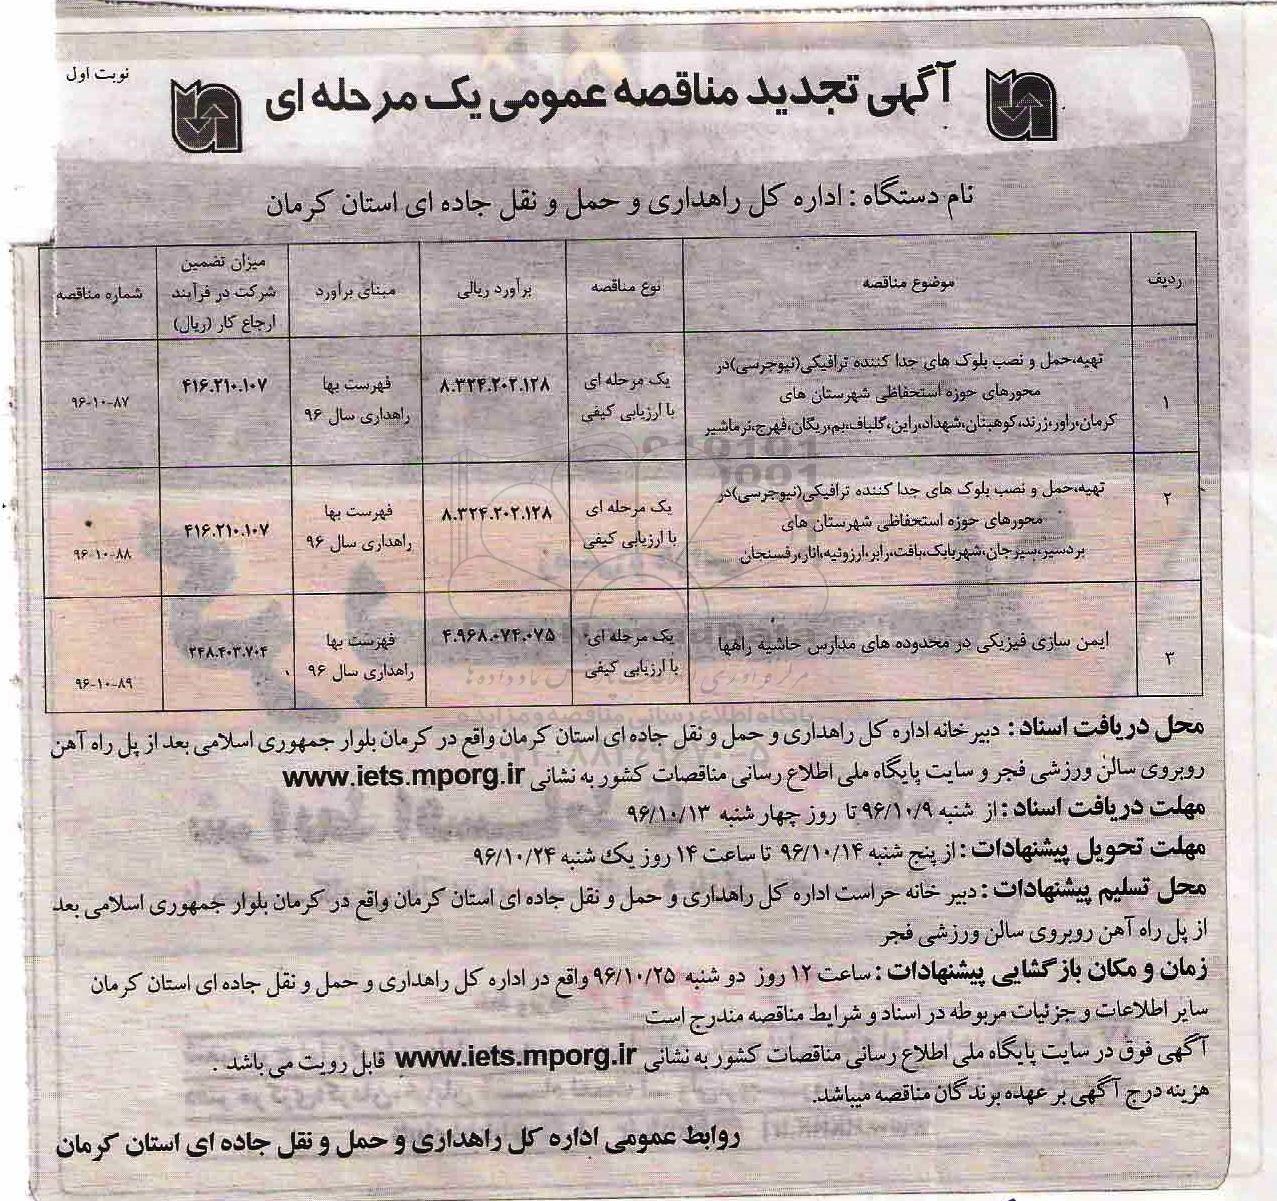 نوبت اول
آگهی تجدید مناقصه عمومی یک مرحله ای
نام دستگاه : اداره کل راهداری و حمل و نقل جاده ای استان کرمان
ردیف موضوع مناقصه نوع مناقصه برآورد ریالی مبنای برآورد میزان تضمین شرکت در فرآیند ارجاع کار (ریال) شماره مناقصه
۱ تهیه،حمل و نصب بلوک های جدا کننده ترافیکی(نیوجرسی)در محورهای حوزه استحفاظی شهرستان های کرمان،راور،زرند،کوهبنان،شهداد،راین،گلباف،بم،ریگان،فهرج،نرماشیر یک مرحله ای با ارزیابی کیفی ۸.۳۲۴.۲۰۲.۱۲۸ فهرست بها راهداری سال ۹۶ ۴۱۶.۲۱۰.۱۰۷ ۹۶-۱۰-۸۷
۲ تهیه،حمل و نصب بلوک های جدا کننده ترافیکی(نیوجرسی)در محورهای حوزه استحفاظی شهرستان های بردسیر،سیرجان،شهربابک،بافت،رابر،ارزوئیه،انار،رفسنجان یک مرحله ای با ارزیابی کیفی ۸.۳۲۴.۲۰۲.۱۲۸ فهرست بها راهداری سال ۹۶ ۴۱۶.۲۱۰.۱۰۷ ۹۶-۱۰-۸۸
۳ ایمن سازی فیزیکی در محدوده های مدارس حاشیه راهها یک مرحله ای با ارزیابی کیفی ۴.۹۶۸.۰۷۴.۰۷۵ فهرست بها راهداری سال ۹۶ ۲۴۸.۴۰۳.۷۰۴ ۹۶-۱۰-۸۹
محل دریافت اسناد : دبیرخانه اداره کل راهداری و حمل و نقل جاده ای استان کرمان واقع در کرمان بلوار جمهوری اسلامی بعد از پل راه آهن
روبروی سالن ورزشی فجر و سایت پایگاه ملی اطلاع رسانی مناقصات کشور به نشانی www.iets.mporg.ir
مهلت دریافت اسناد : از شنبه ۹۶/۱۰/۹ تا روز چهار شنبه ۹۶/۱۰/۱۳
مهلت تحویل پیشنهادات : از پنج شنبه ۹۶/۱۰/۱۴ تا ساعت ۱۴ روز یک شنبه ۹۶/۱۰/۲۴
محل تسلیم پیشنهادات : دبیر خانه حراست اداره کل راهداری و حمل و نقل جاده ای استان کرمان واقع در کرمان بلوار جمهوری اسلامی بعد
از پل راه آهن روبروی سالن ورزشی فجر
زمان و مکان بازگشایی پیشنهادات : ساعت ۱۲ روز دو شنبه ۹۶/۱۰/۲۵ واقع در اداره کل راهداری و حمل و نقل جاده ای استان کرمان
سایر اطلاعات و جزئیات مربوطه در اسناد و شرایط مناقصه مندرج است
آگهی فوق در سایت پایگاه ملی اطلاع رسانی مناقصات کشور به نشانی www.iets.mporg.ir قابل رویت می باشد .
هزینه درج آگهی بر عهده برندگان مناقصه میباشد.
روابط عمومی اداره کل راهداری و حمل و نقل جاده ای استان کرمان